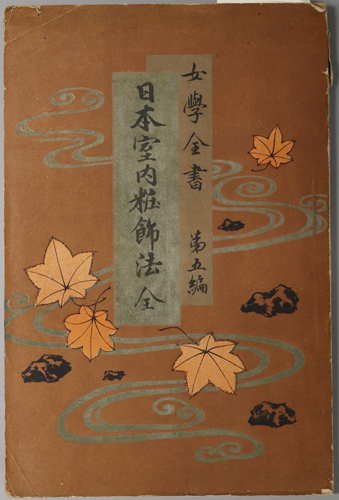 女學全書 第五編
日本室内粧飾法 全